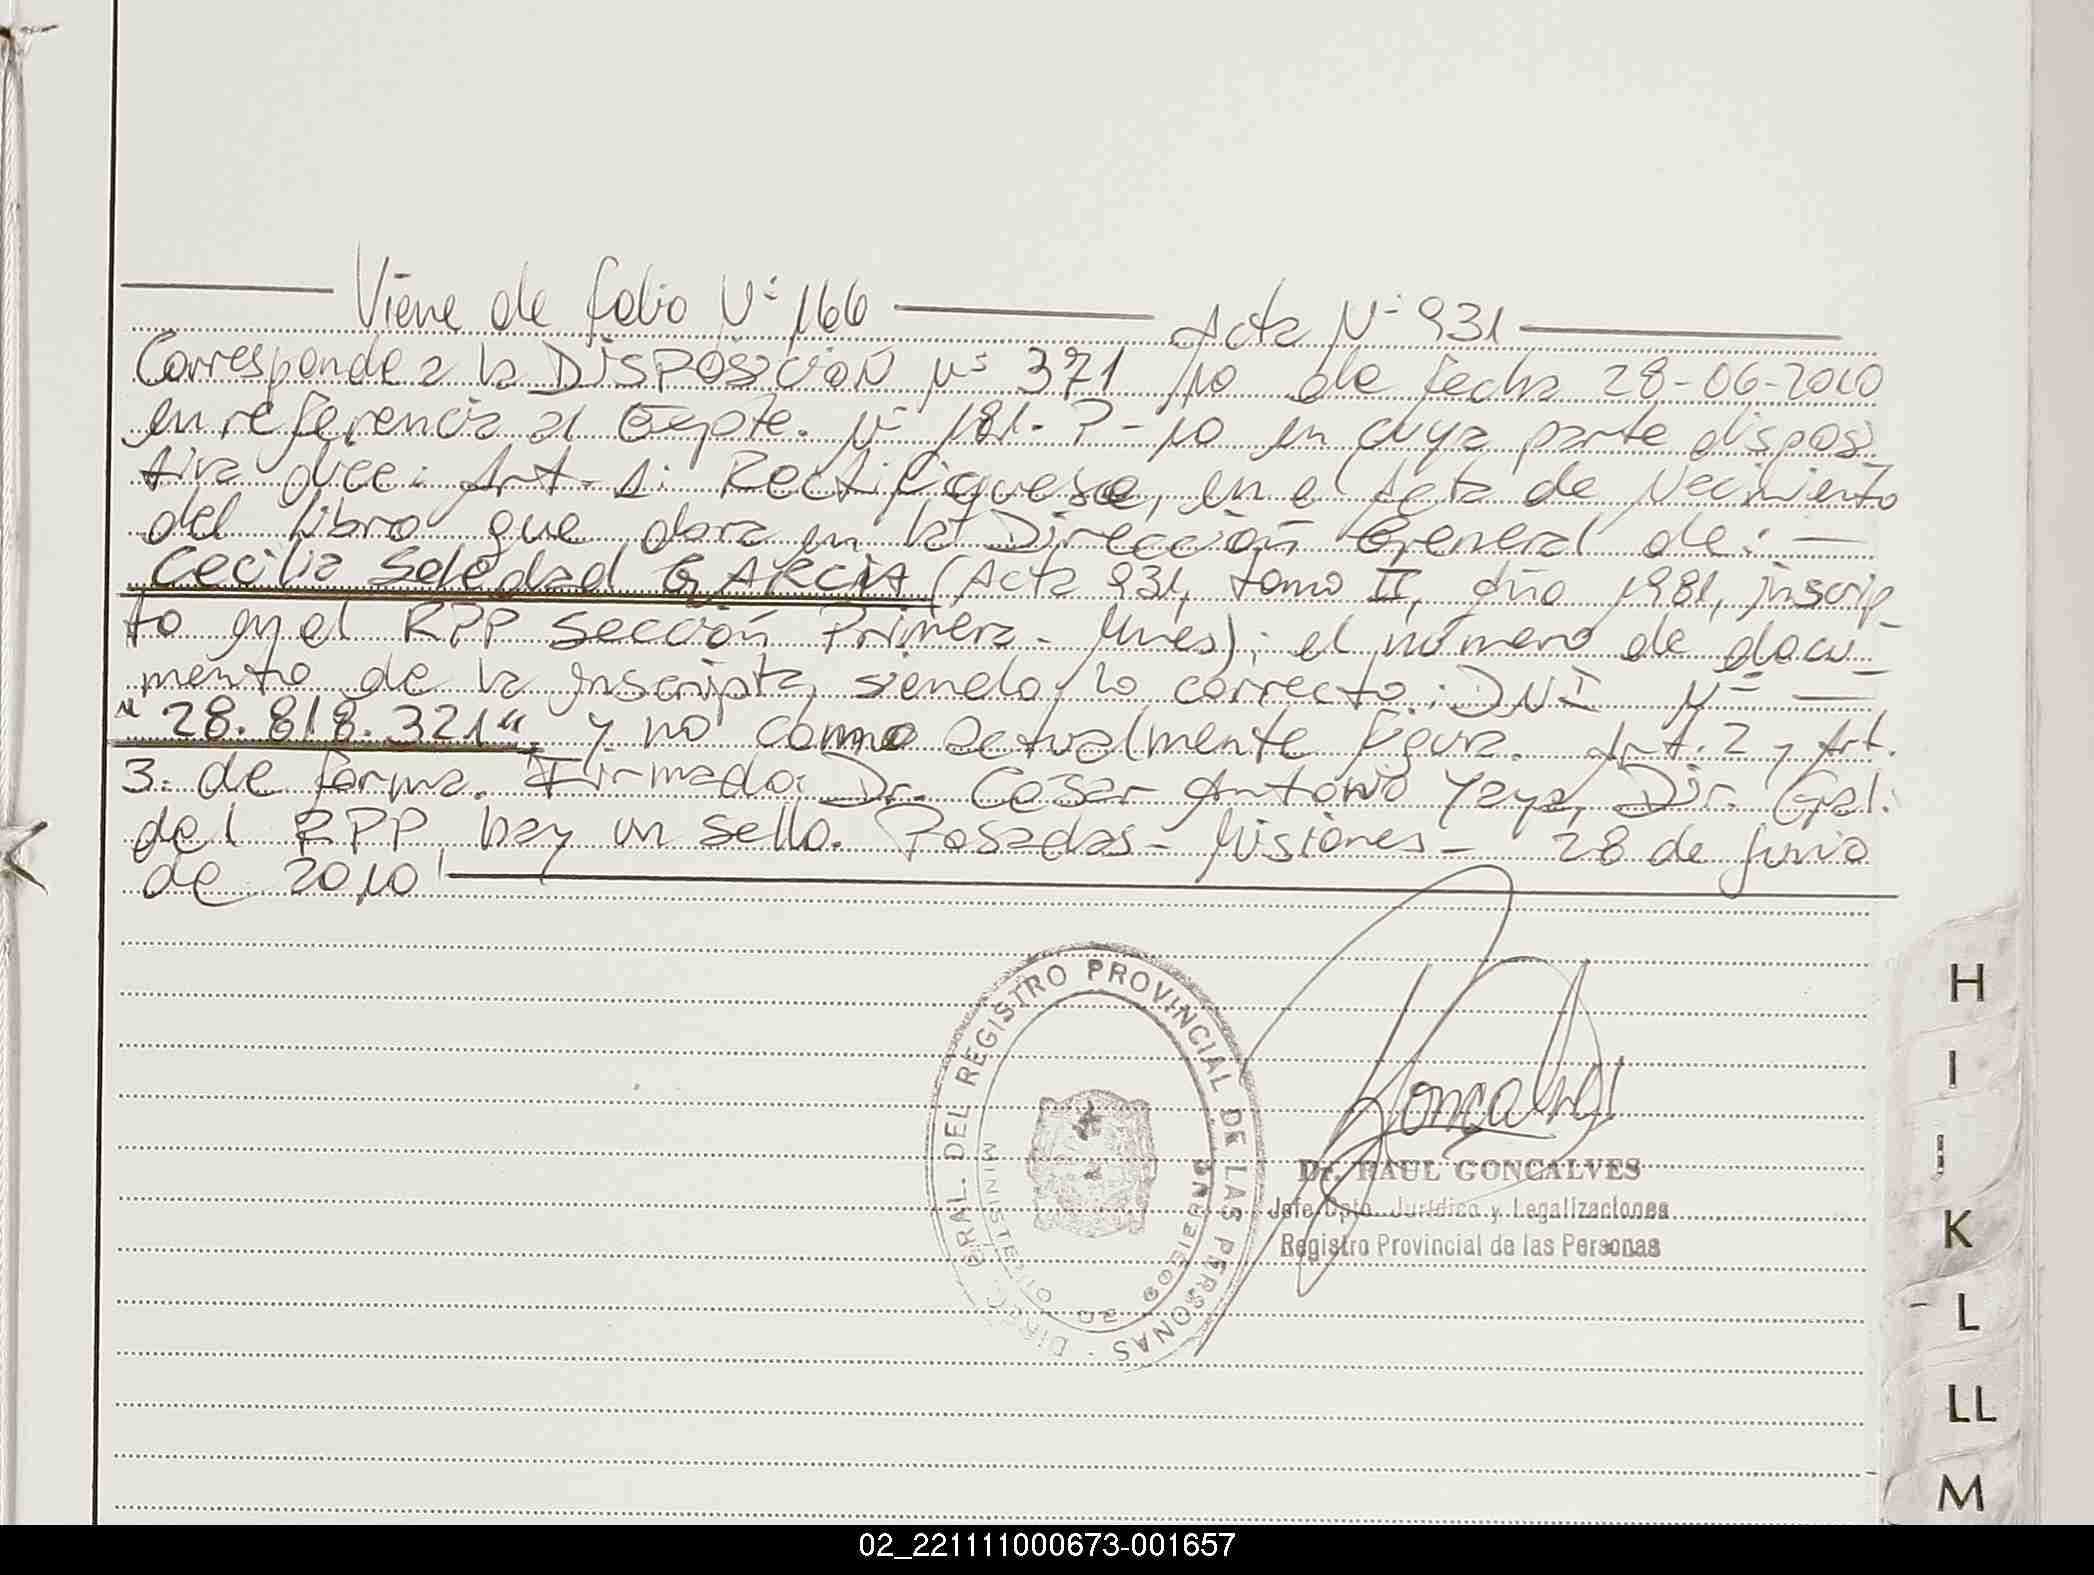 Viene de folio Nº 166 Acta Nº 931
Corresponde a la DISPOSICION Nº 371 /10 de fecha 28-06-2010
en referencia al Expte. Nº 181-P-10 en cuya parte disposi
tiva dice: Art. 1: Rectifiquese, en el Acta de Nacimiento
del libro que obra en la Dirección General de: —
Cecilia Soledad GARCIA (Acta 931, tomo II, año 1981, inscrip-
to en el RPP Sección Primera - Mnes); el número de docu-
mento de la inscripta, siendo lo correcto: DNI Nº —
"28.818.321" y no como actualmente figura. Art. 2 y Art.
3: de forma. Firmado: Dr. César Antonio Yaya, Dir. Gral.
del RPP, hay un sello. Posadas - Misiones - 28 de junio
de 2010
DIREC. GRAL. DEL REGISTRO PROVINCIAL DE LAS PERSONAS
MINISTERIO DE GOBIERNO
Dr. RAUL GONCALVES
Jefe Dpto. Jurídico y Legalizaciones
Registro Provincial de las Personas
H
I
J
K
L
LL
M
02_221111000673-001657